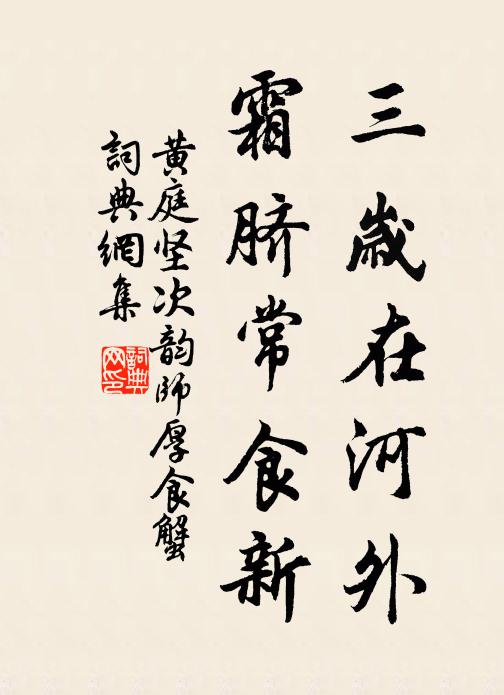 三歲在河外
霜脐常食新
黄庭坚次韵師厚食蟹
詞典網集
詞典网印